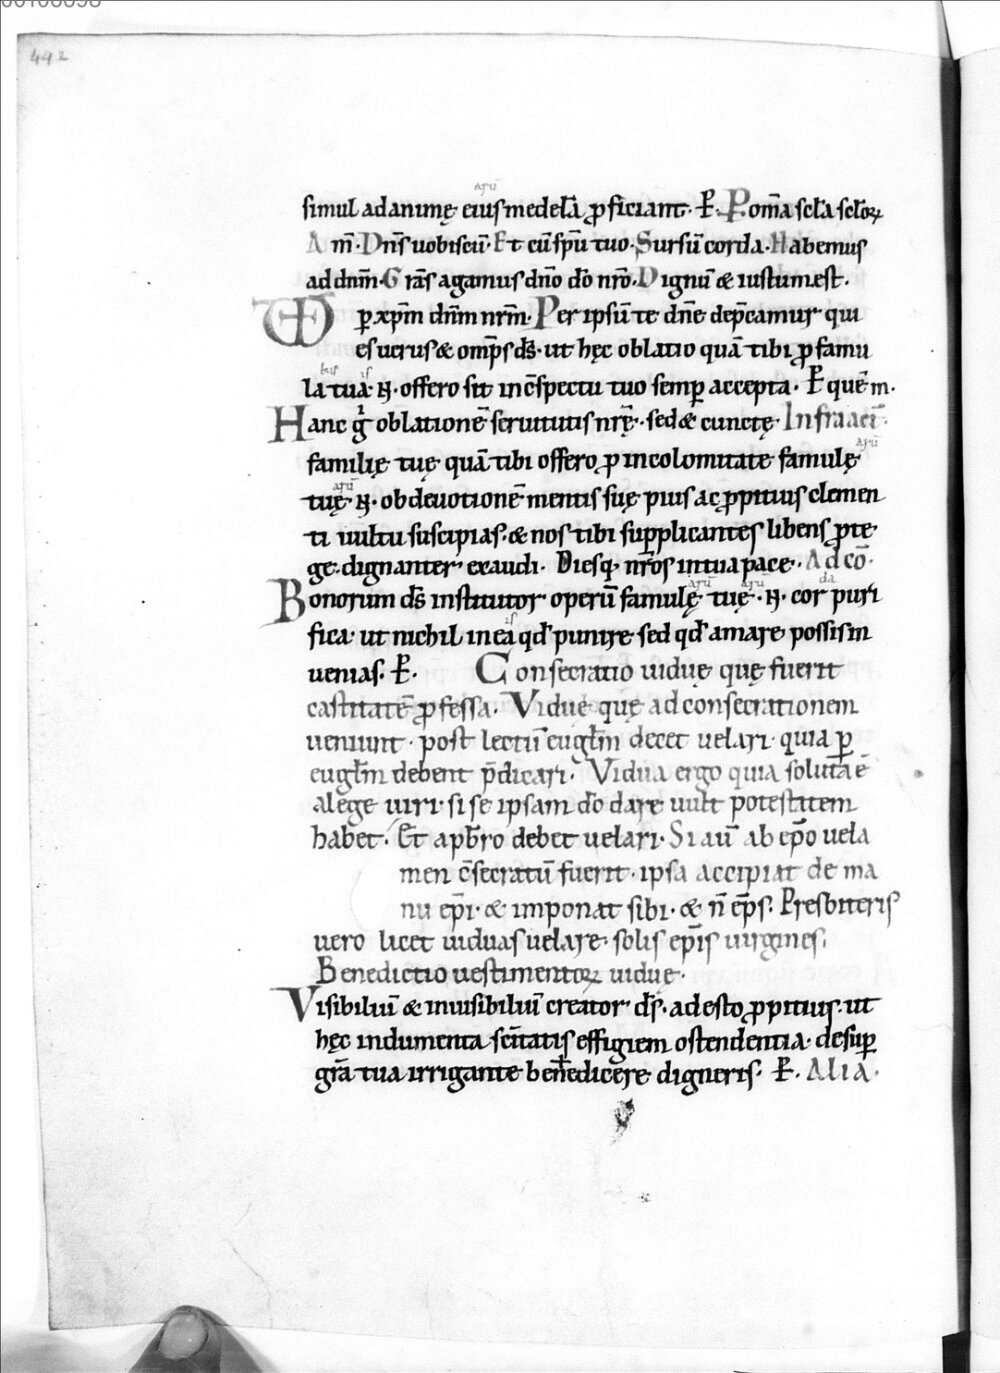 442
simul ad animę eius medelā ꝓficiant. P̄. Pom̄a scl̄a scl̄oꝝ
Am̄. Dn̄s uobiscū. Et cū sp̄u tuo. Sursū corda. Habemus
ad dn̄m. Gr̄as agamus dn̄o dō nr̄o. Dignū & iustum est.
VD ꝑ xp̄m dn̄m nr̄m. Per ipsū te dn̄e dep̄camur qui
es uerus & omp̄s ds̄. ut hęc oblatio quā tibi ꝓ famu
la tua .N. offero sit in c̄spectu tuo semꝑ accepta. P̄ quē m.
Hanc g̊ oblationē seruitutis nr̄ę. sed & cunctę. Infra actī.
familię tuę quā tibi offero ꝓ incolomitate famulę
tuę .N. ob deuotionē mentis suę pius ac ꝓpitius clemen
ti uultu suscipias. & nos tibi supplicantes libens ꝓte
ge. dignanter exaudi. Diesq; nr̄os in tua pace. Ad cō.
Bonorum ds̄ institutor operū famulę tuę .N. cor puri
fica. ut nichil in ea qd̄ punire sed qd̄ amare possis in
uenias. P̄. Consecratio uiduę quę fuerit
castitatē ꝓfessa. Viduę quę ad consecrationem
ueniunt. post lectū eugl̄m decet uelari. quia ꝑ
eugl̄m debent p̄dicari. Vidua ergo quia soluta ē
a lege uiri. si se ipsam dō dare uult potestatem
habet. Et a pb̄ro debet uelari. Si aū ab ep̄o uela
men c̄secratū fuerit. ipsa accipiat de ma
nu ep̄i. & imponat sibi. & n̄ ep̄s. Presbiteris
uero licet uiduas uelare. solis ep̄is uirgines.
Benedictio uestimentoꝝ uiduę.
Visibiliū & inuisibiliū creator ds̄. adesto ꝓpitius. ut
hęc indumenta sc̄itatis effigiem ostendentia. desuꝑ
gr̄a tua irrigante bene✝dicere digneris. P̄. Alia.